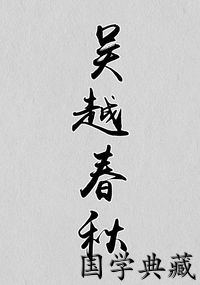 吴越春秋
国学典藏